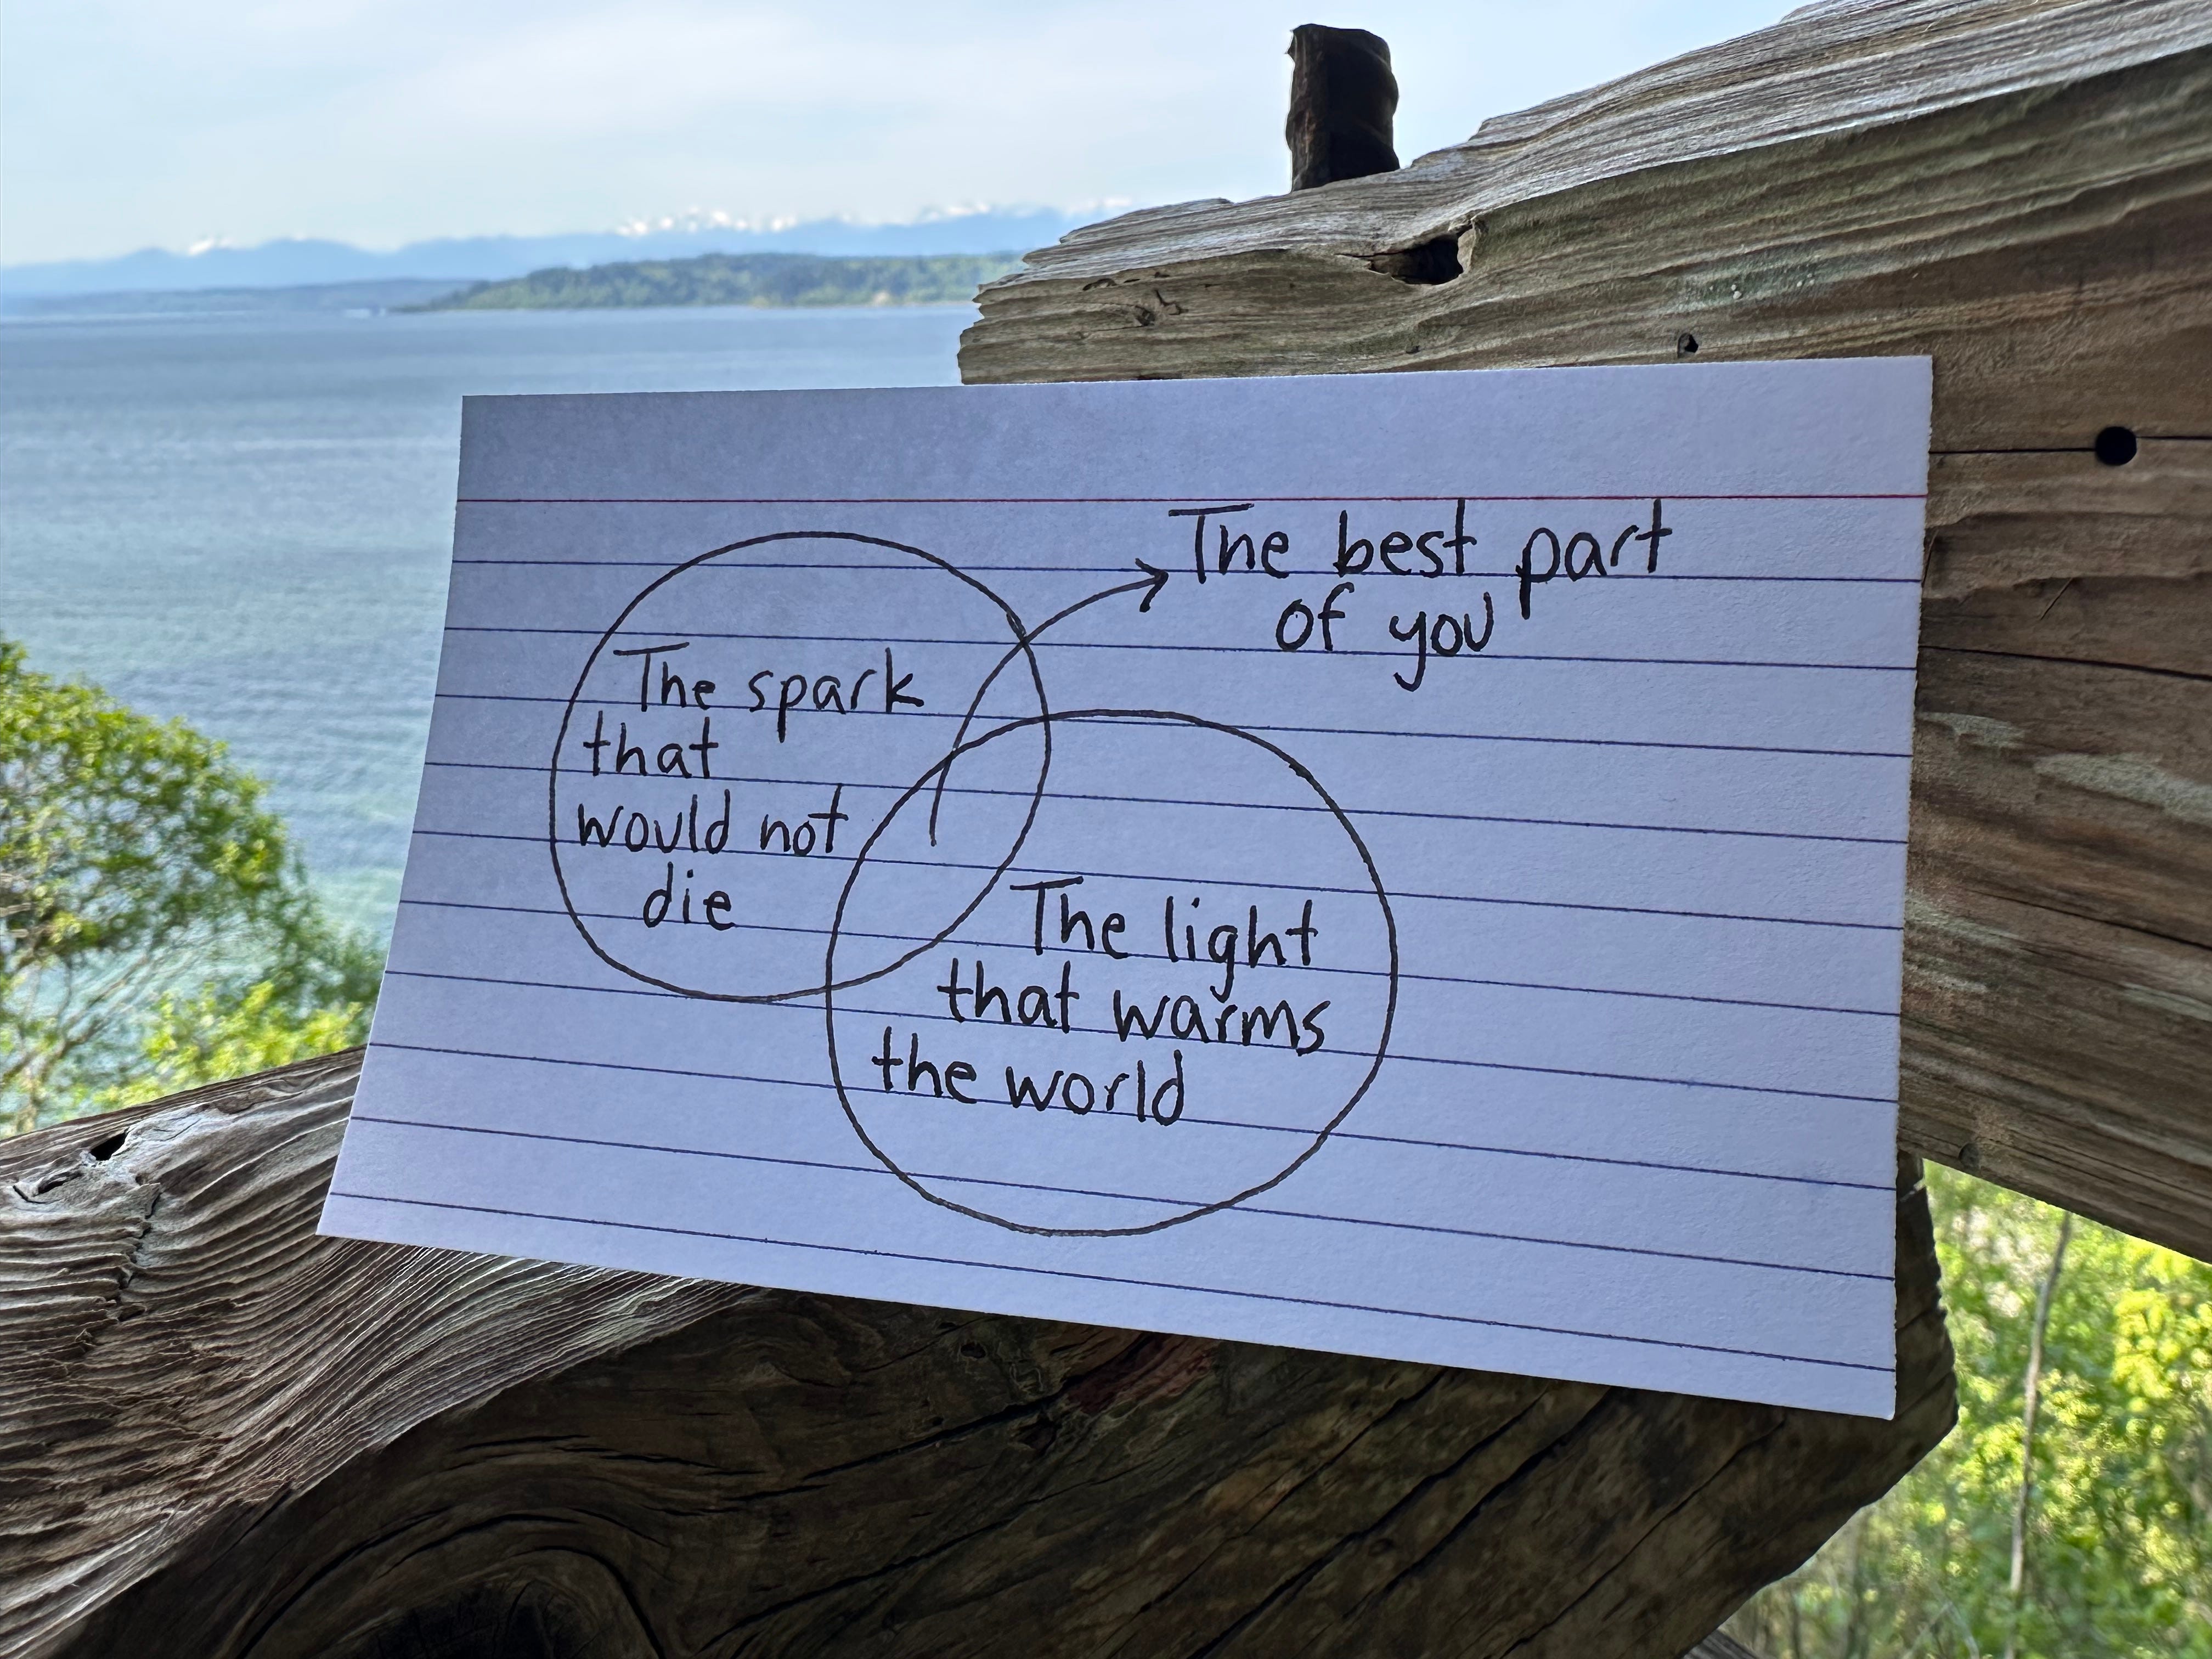 The best part
of you
The spark
that
would not
die
The light
that warms
the world